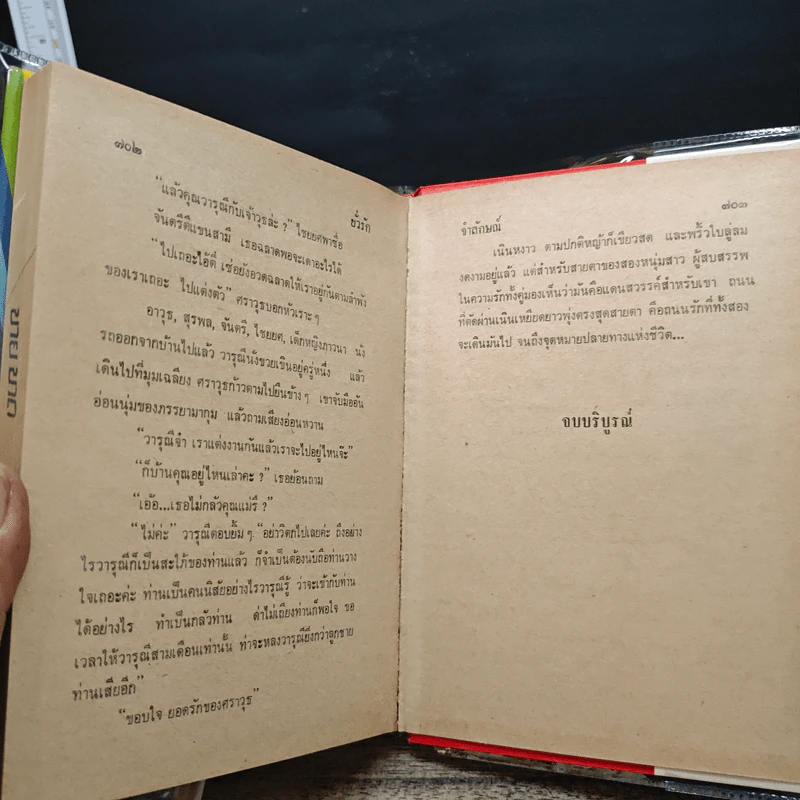 ๗๐๒
ยั่วรัก
“แล้วคุณวารุณีกับเจ้าวุธล่ะ ?” ไชยยศพาซื่อ
จันตรีตีแขนสามี เธอฉลาดพอจะเดาอะไรได้
“ไปเถอะไอ้ตี๋ เชื่อยังอวดฉลาดให้เราอยู่กันตามลำพัง
ของเราเถอะ ไปแต่งตัว” ศราวุธบอกหัวเราะๆ
อาวุธ, สุรพล, จันตรี, ไชยยศ, เด็กหญิงภาวนา นั่ง
รถออกจากบ้านไปแล้ว วารุณีนั่งขวยเขินอยู่ครู่หนึ่ง แล้ว
เดินไปที่มุมเฉลียง ศราวุธก้าวตามไปยืนข้างๆ เขาจับมืออัน
อ่อนนุ่มของภรรยามากุม แล้วถามเสียงอ่อนหวาน
“วารุณีจ๋า เราแต่งงานกันแล้วเราจะไปอยู่ไหนจ๊ะ”
“ก็บ้านคุณอยู่ไหนเล่าคะ ?” เธอย้อนถาม
“เอ้อ...เธอไม่กลัวคุณแม่รึ ?”
“ไม่ค่ะ” วารุณีตอบยิ้มๆ “อย่าวิตกไปเลยค่ะ ถึงอย่าง
ไรวารุณีก็เป็นสะใภ้ของท่านแล้ว ก็จำเป็นต้องนับถือท่านวาง
ใจเถอะค่ะ ท่านเป็นคนนิสัยอย่างไรวารุณีรู้ ว่าจะเข้ากับท่าน
ได้อย่างไร ทำเป็นกลัวท่าน ด่าไม่เถียงท่านก็พอใจ ขอ
เวลาให้วารุณีสามเดือนเท่านั้น ท่าจะหลงวารุณียิ่งกว่าลูกชาย
ท่านเสียอีก”
“ขอบใจ ยอดรักของศราวุธ”
จำลักษณ์
๗๐๓
เนินหงาว ตามปกติหญ้าก็เขียวสด และพริ้วใบลู่ลม
งดงามอยู่แล้ว แต่สำหรับสายตาของสองหนุ่มสาว ผู้สบสรรพ
ในความรักทั้งคู่มองเห็นว่ามันคือแดนสวรรค์สำหรับเขา ถนน
ที่ตัดผ่านเนินเหยียดยาวพุ่งตรงสุดสายตา คือถนนรักที่ทั้งสอง
จะเดินมันไป จนถึงจุดหมายปลายทางแห่งชีวิต...
จบบริบูรณ์